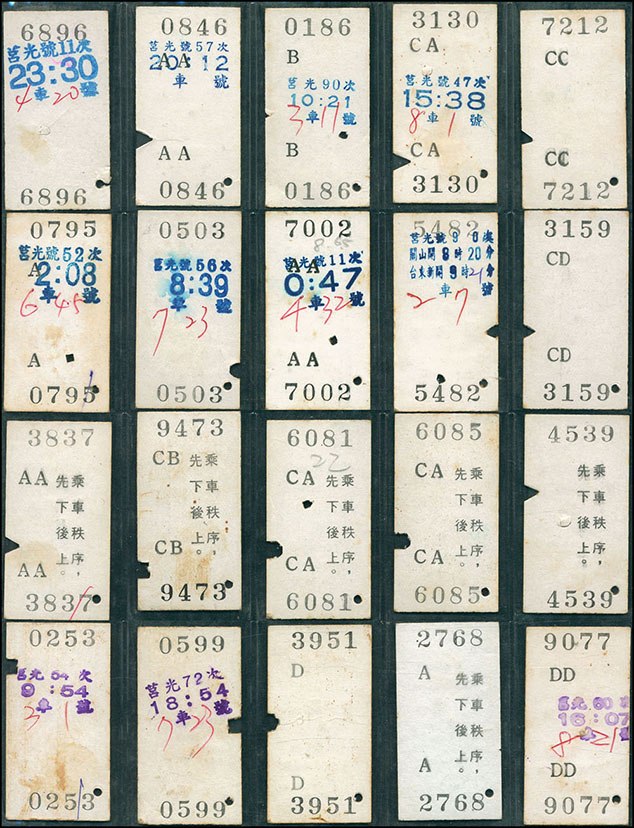 6896
莒光號11次
23:30
4車20號
6896
0846
莒光號57次
AA
車 號
AA
0846
0186
B
莒光90次
10:21
3車17號
B
0186
3130
CA
莒光號47次
15:38
8車1號
CA
3130
7212
CC
CC
7212
0795
莒光號52次
A
2:08
6車45號
A
0795
0503
莒光號56次
8:39
7車23號
0503
7002
莒光號11次
AA
0:47
4車32號
AA
7002
5482
關山開8時20分
台東新開9時21分
2車7號
5482
3159
CD
CD
3159
3837
AA
乘車秩序,
先下後上。
AA
3837
9473
CB
乘車秩序,
先下後上。
CB
9473
6081
22
CA
乘車秩序,
先下後上。
CA
6081
6085
CA
乘車秩序,
先下後上。
CA
6085
4539
乘車秩序,
先下後上。
4539
0253
莒光64次
9:54
3車1號
0253
0599
莒光72次
18:54
7車23號
0599
3951
D
D
3951
2768
A
乘車秩序,
先下後上。
A
2768
9077
DD
莒光60次
16:07
8車21號
DD
9077